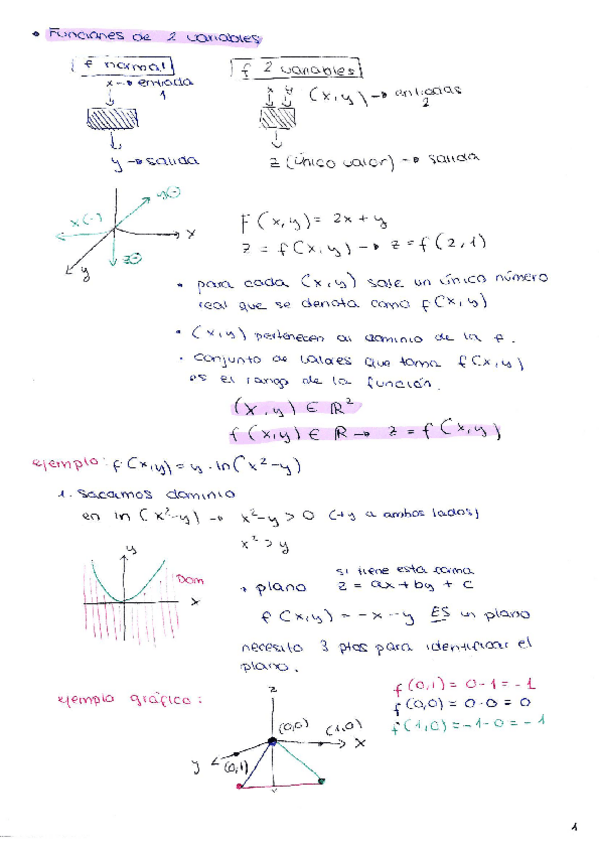 • Funciones de 2 variables
f normal
f 2 variables
x → entrada
1
x y (x,y) → entradas
2
y → salida
z (único valor) → salida
x(-)
x
y
F(x,y) = 2x + y
z = f(x,y) → z = f(2,1)
• para cada (x,y) sale un único número
real que se denota como f(x,y)
• (x,y) pertenecen al dominio de la f.
• conjunto de valores que toma f(x,y)
es el rango de la función.
(x,y) ∈ ℝ²
f(x,y) ∈ ℝ → z = f(x,y)
ejemplo: f(x,y) = y·ln(x²-y)
1. sacamos dominio
en ln(x²-y) → x²-y > 0 (+y a ambos lados)
x² > y
y
Dom
x
si tiene esta forma
• plano z = ax + by + c
f(x,y) = -x-y ES un plano
necesito 3 ptos para identificar el
plano.
ejemplo gráfico:
f(0,1) = 0-1 = -1
f(0,0) = 0-0 = 0
f(1,0) = -1-0 = -1
z
(0,0)
(1,0)
x
y
(0,1)
1